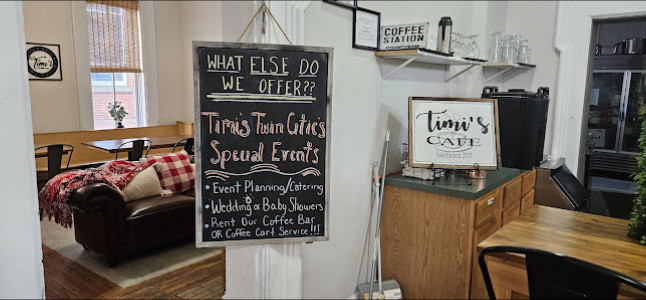 Timi's
WHAT ELSE DO
WE OFFER??
Timi's Twin Citie's
Special Events
• Event Planning/Catering
• Wedding or Baby Showers
• Rent Our Coffee Bar
OR Coffee Cart Service!!!
COFFEE
STATION
timi's
CAFE